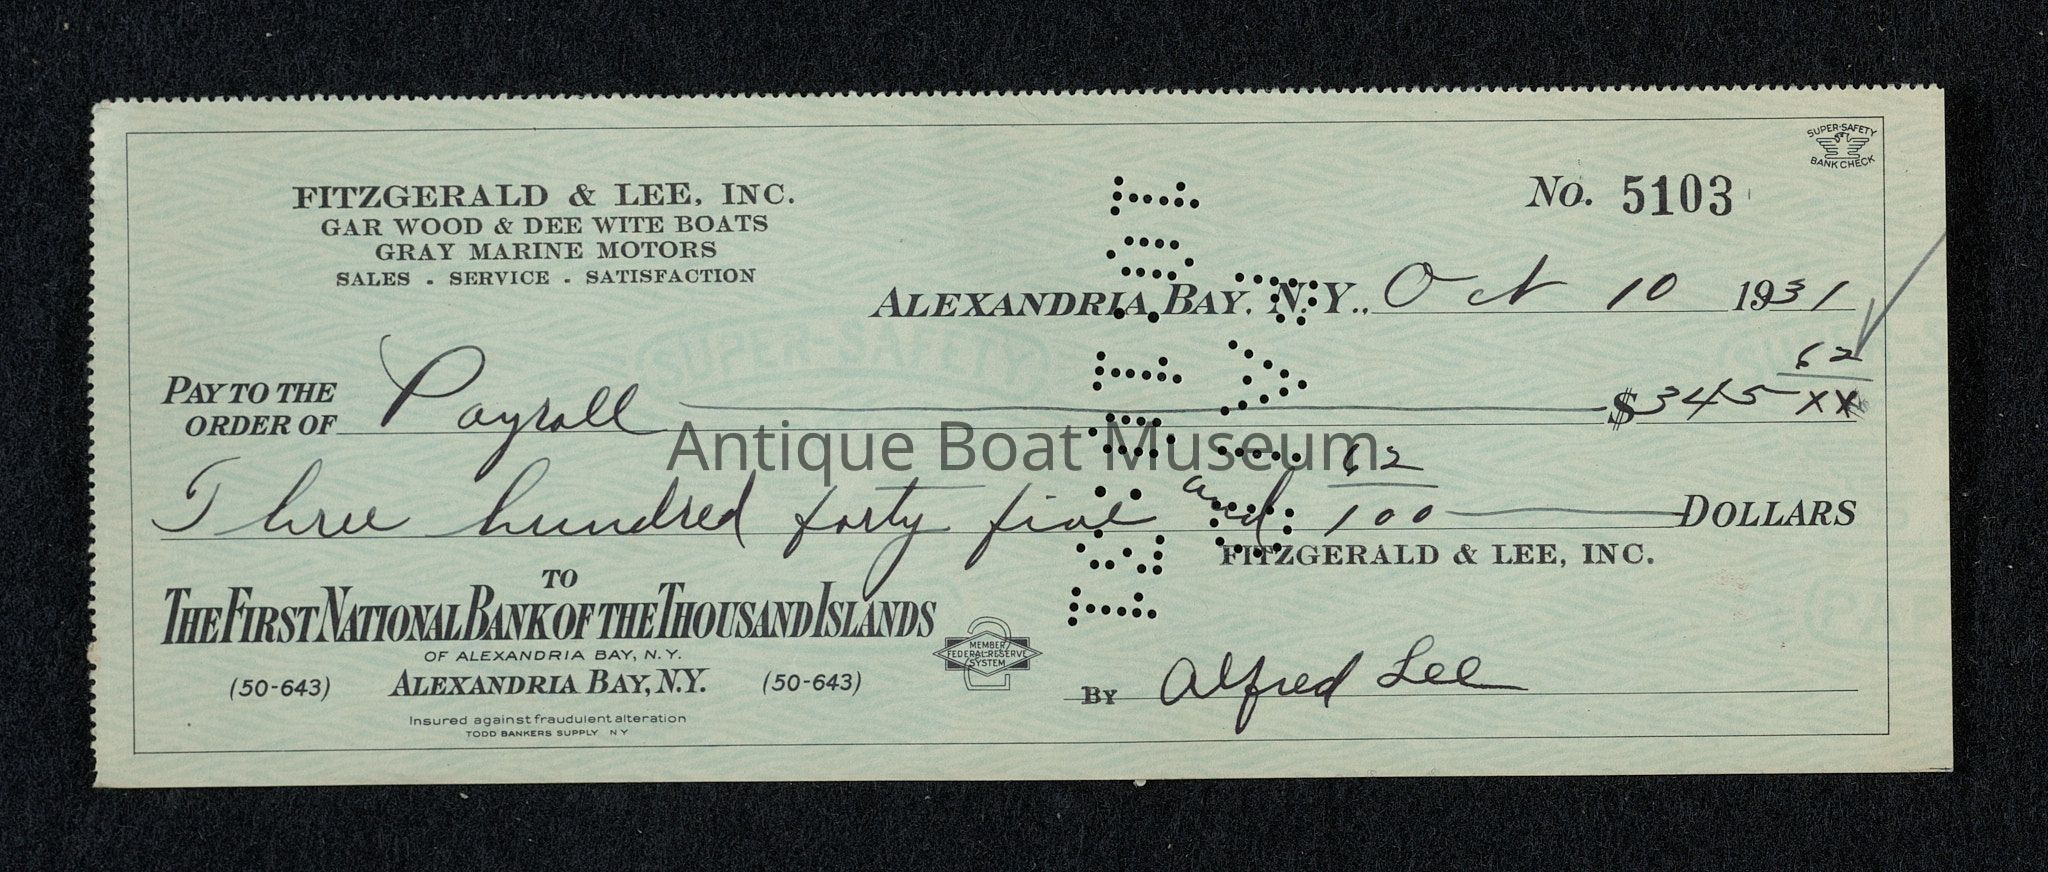 SUPER-SAFETY
BANK CHECK
FITZGERALD & LEE, INC.
GAR WOOD & DEE WITE BOATS
GRAY MARINE MOTORS
SALES . SERVICE . SATISFACTION
No. 5103
ALEXANDRIA BAY, N.Y., Oct 10 1931
SUPER-SAFETY
PAY TO THE
ORDER OF Payroll $345 62/XX
Antique Boat Museum
Three hundred forty five and 62/100 DOLLARS
FITZGERALD & LEE, INC.
TO
THE FIRST NATIONAL BANK OF THE THOUSAND ISLANDS
OF ALEXANDRIA BAY, N.Y.
(50-643) ALEXANDRIA BAY, N.Y. (50-643)
MEMBER
FEDERAL RESERVE
SYSTEM
BY Alfred Lee
Insured against fraudulent alteration
TODD BANKERS SUPPLY NY